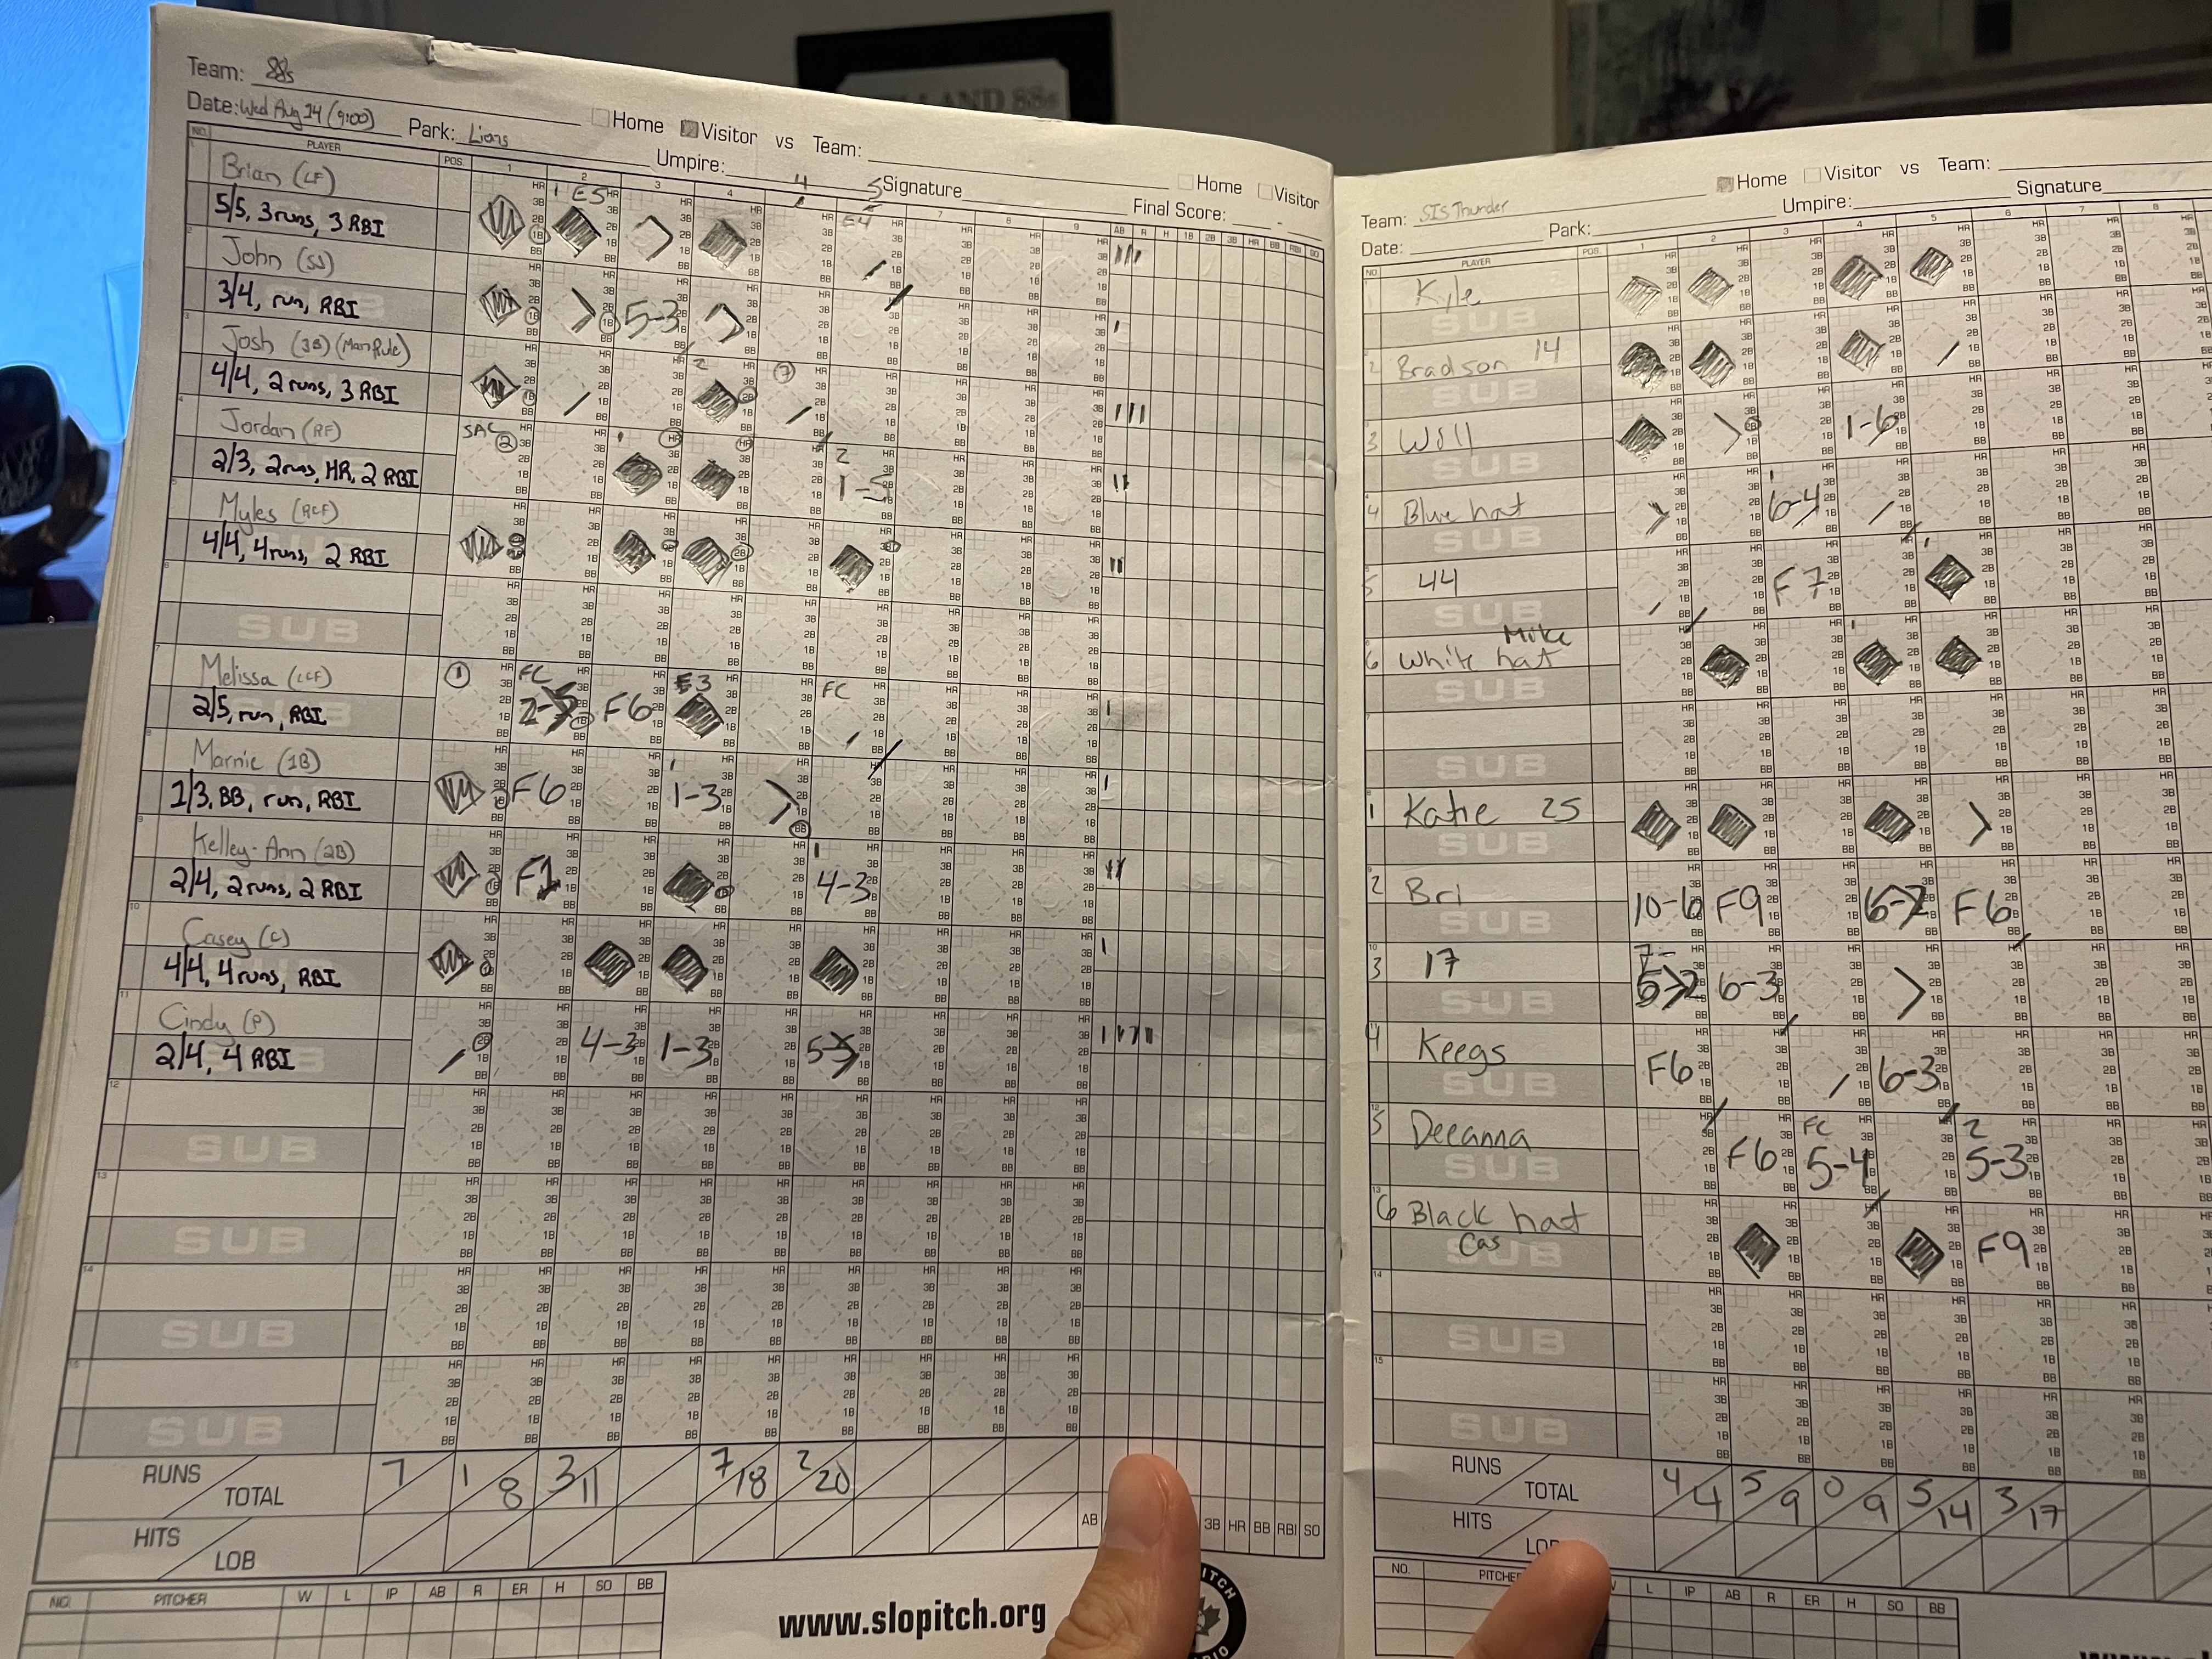 Team: 88s
Home Visitor vs Team:
Home Visitor
Date: Wed Aug 14 (9:00) Park: Lions Umpire: Signature Final Score: -
NO. PLAYER POS. 1 2 3 4 4 5 7 8 9 AB R H 1B 2B 3B HR BB RBI SO
Brian (LF)
5/5, 3 runs, 3 RBI
E5
E4
John (SS)
3/4, run, RBI
5-3
Josh (3B) (Man Rule)
4/4, 2 runs, 3 RBI
2
7
Jordan (RF)
2/3, 2 runs, HR, 2 RBI
SAC 2
2
1-5
Myles (RCF)
4/4, 4 runs, 2 RBI
SUB
Melissa (LCF)
2/5, run, RBI
1
FC
2-5 F6 E3 FC
Marnie (1B)
1/3, BB, run, RBI
F6 1-3
Kelley-Ann (2B)
2/4, 2 runs, 2 RBI
F1 4-3
Casey (C)
4/4, 4 runs, RBI
Cindy (P)
2/4, 4 RBI
4-3 1-3 5-3
SUB
SUB
SUB
SUB
RUNS TOTAL 7 1/8 3/11 7/18 2/20
HITS LOB
AB 3B HR BB RBI SO
NO. PITCHER W L IP AB R ER H SO BB
www.slopitch.org
Home Visitor vs Team:
Team: SIS Thunder
Date: Park: Umpire: Signature
NO. PLAYER POS. 1 2 3 4 5 6 7 8
1 Kyle
SUB
2 Bradson 14
SUB
3 Will 1-6
SUB
4 Blue hat 6-4
SUB
5 44 F7
SUB
Mike
6 White hat
SUB
SUB
1 Katie 25
SUB
2 Bri 10-6 F9 6-2 F6
SUB
3 17 7-
5-2 6-3
SUB
4 Keegs F6 6-3
SUB
5 Deeanna F6 FC 5-4 2 5-3
SUB
6 Black hat F9
Cas
SUB
SUB
SUB
RUNS TOTAL 4/4 5/9 0/9 5/14 3/17
HITS
NO. PITCHER L IP AB R ER H SO BB